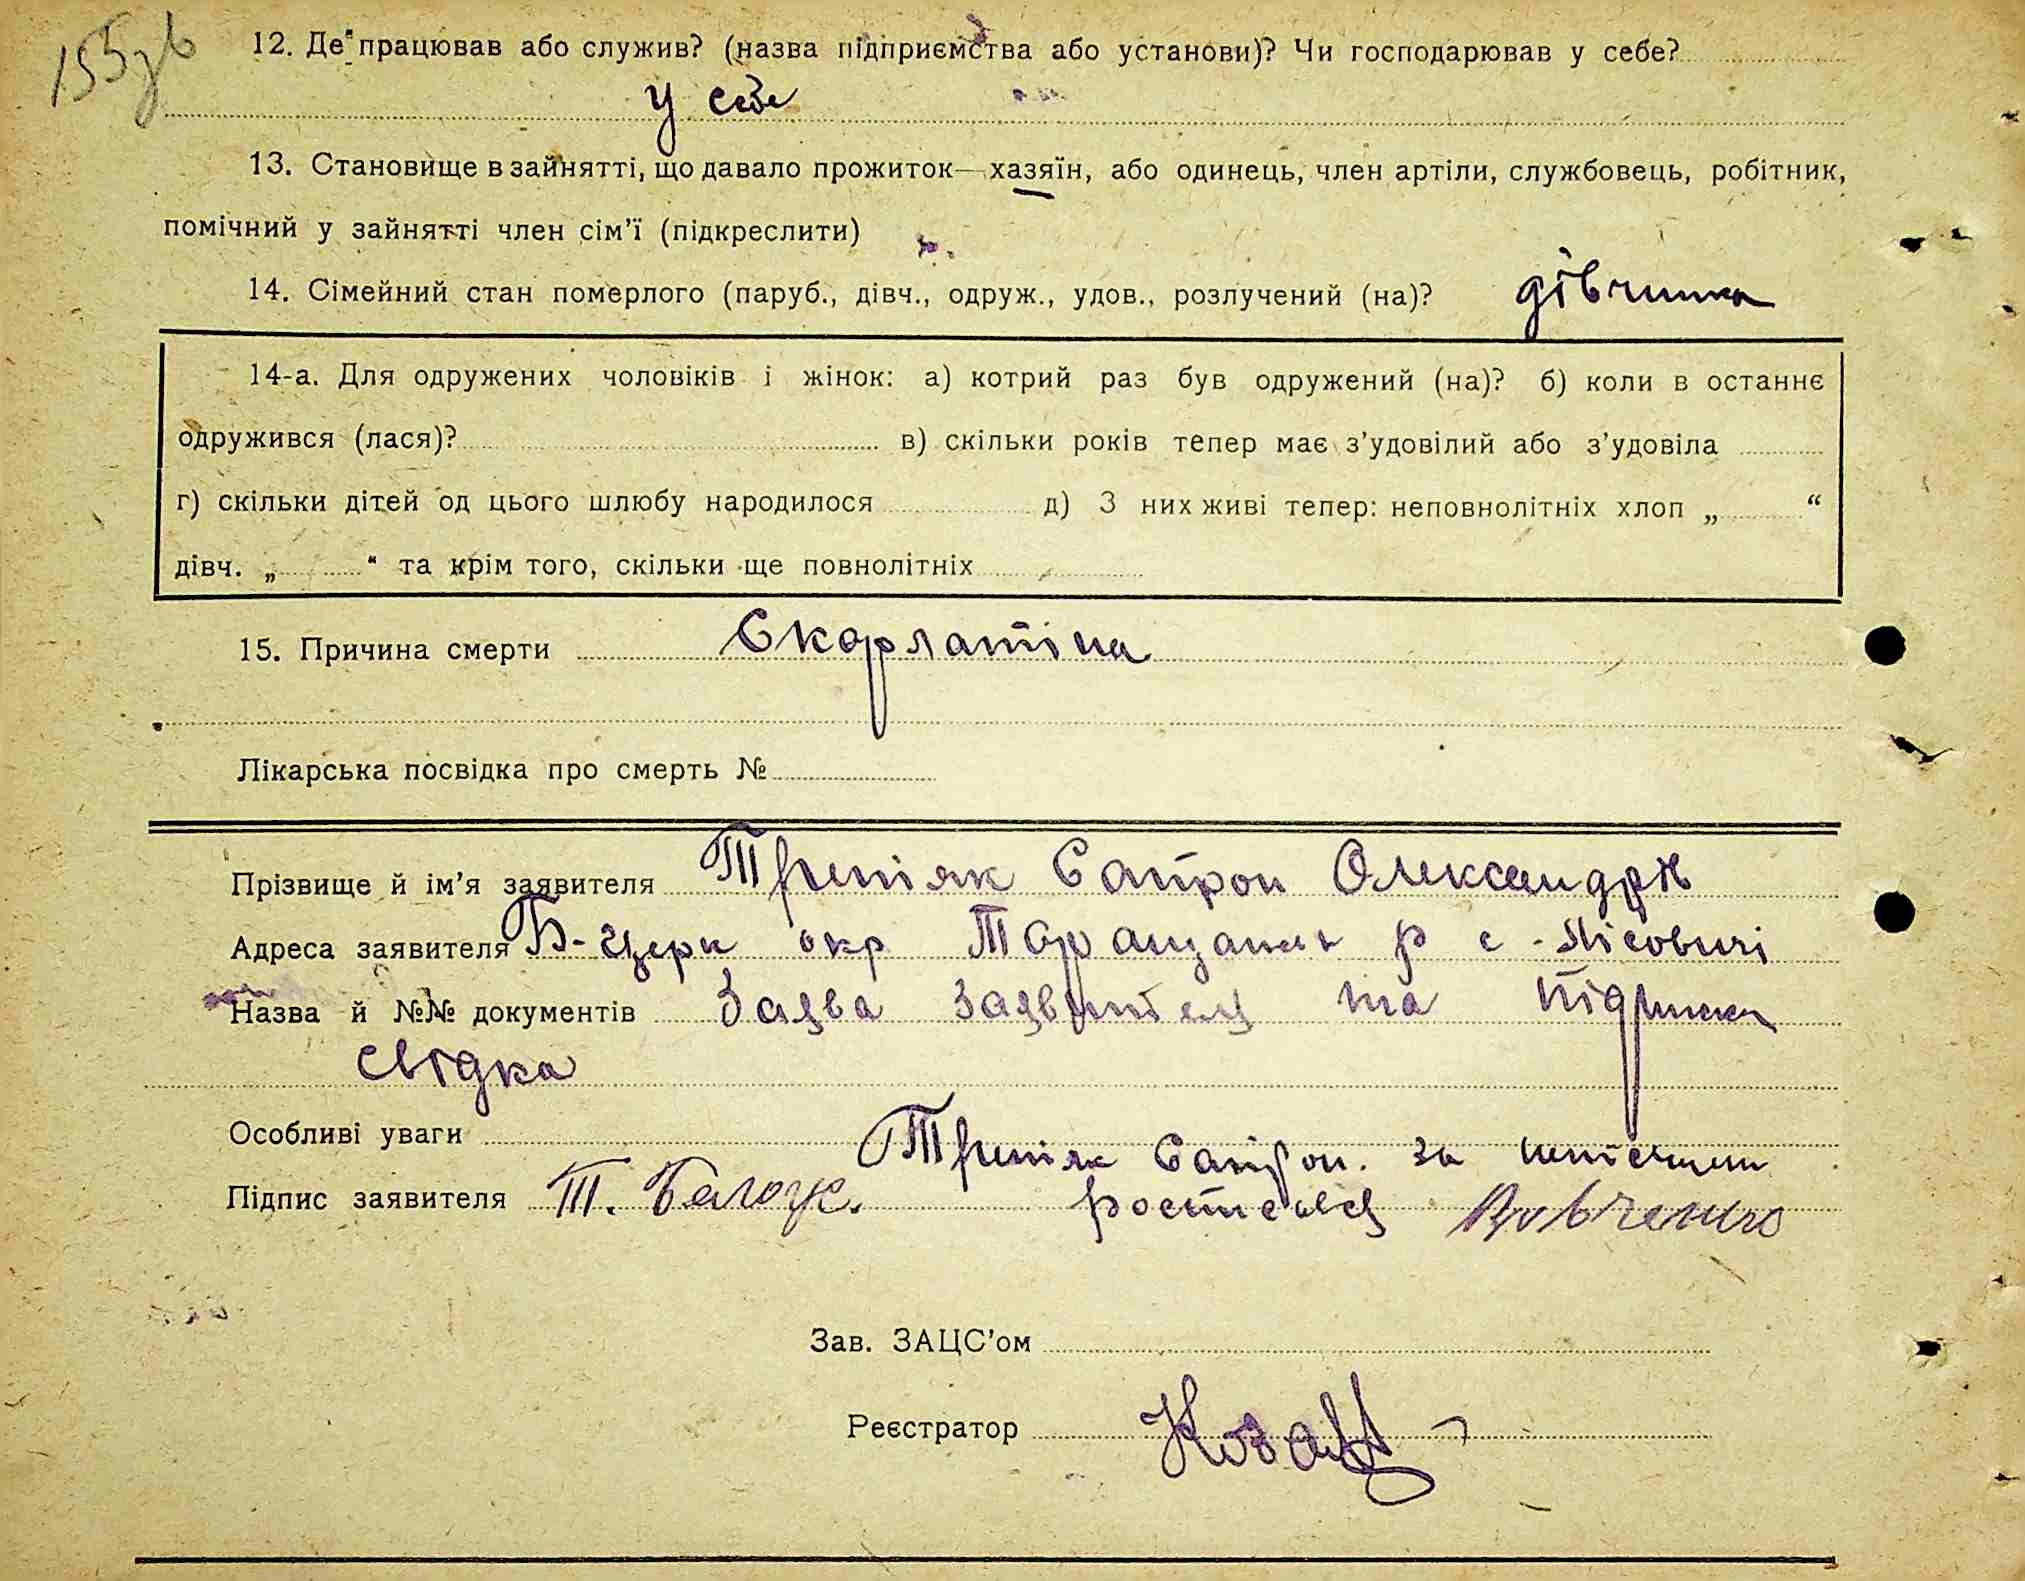 155 зв
12. Де працював або служив? (назва підприємства або установи)? Чи господарював у себе?
у себе
13. Становище в зайнятті, що давало прожиток—хазяїн, або одинець, член артіли, службовець, робітник,
помічний у зайнятті член сім'ї (підкреслити)
14. Сімейний стан померлого (паруб., дівч., одруж., удов., розлучений (на)? дівчинка
14-а. Для одружених чоловіків і жінок: а) котрий раз був одружений (на)? б) коли в останнє
одружився (лася)? в) скільки років тепер має з'удовілий або з'удовіла
г) скільки дітей од цього шлюбу народилося д) З них живі тепер: неповнолітніх хлоп „ “
дівч. „ “ та крім того, скільки ще повнолітніх
15. Причина смерти Скарлатіна
Лікарська посвідка про смерть №
Прізвище й ім'я заявителя Третіяк Сапрон Олександрів
Адреса заявителя Б-Церк окр Таращанськ р с - Лісовичі
Назва й №№ документів Заява заявителя та підписка
свідка
Особливі уваги Третіяк Сапрон. за
Підпис заявителя Т. ростсься Вовченко
Зав. ЗАЦС'ом
Реєстратор